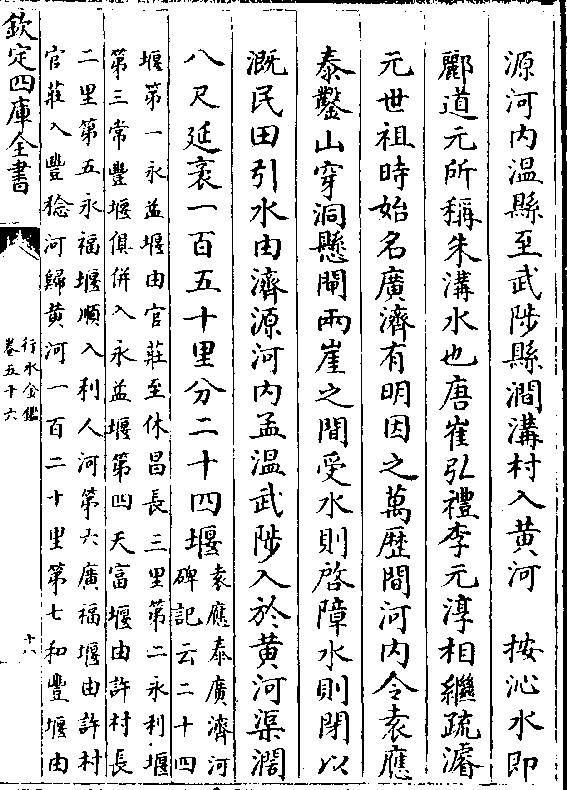 源河内温縣至武陟縣澗溝村入黄河　按沁水即
酈道元所稱朱溝水也唐崔弘禮李元淳相繼疏濬
元世祖時始名廣濟有明因之萬歷間河内令袁應
泰鑿山穿洞懸閘兩崖之間受水則啓障水則閉以
溉民田引水由濟源河内孟温武陟入於黄河渠濶
八尺延袤一百五十里分二十四堰
袁應泰廣濟河
碑記云二十四
堰第一永益堰由官莊至休昌長三里第二永利堰
第三常豐堰俱併入永益堰第四天富堰由許村長
二里第五永福堰順入利人河第六廣福堰由許村
官莊入豐稔河歸黄河一百二十里第七和豐堰由
欽定四庫全書
行水金鑑
卷五十六
十八